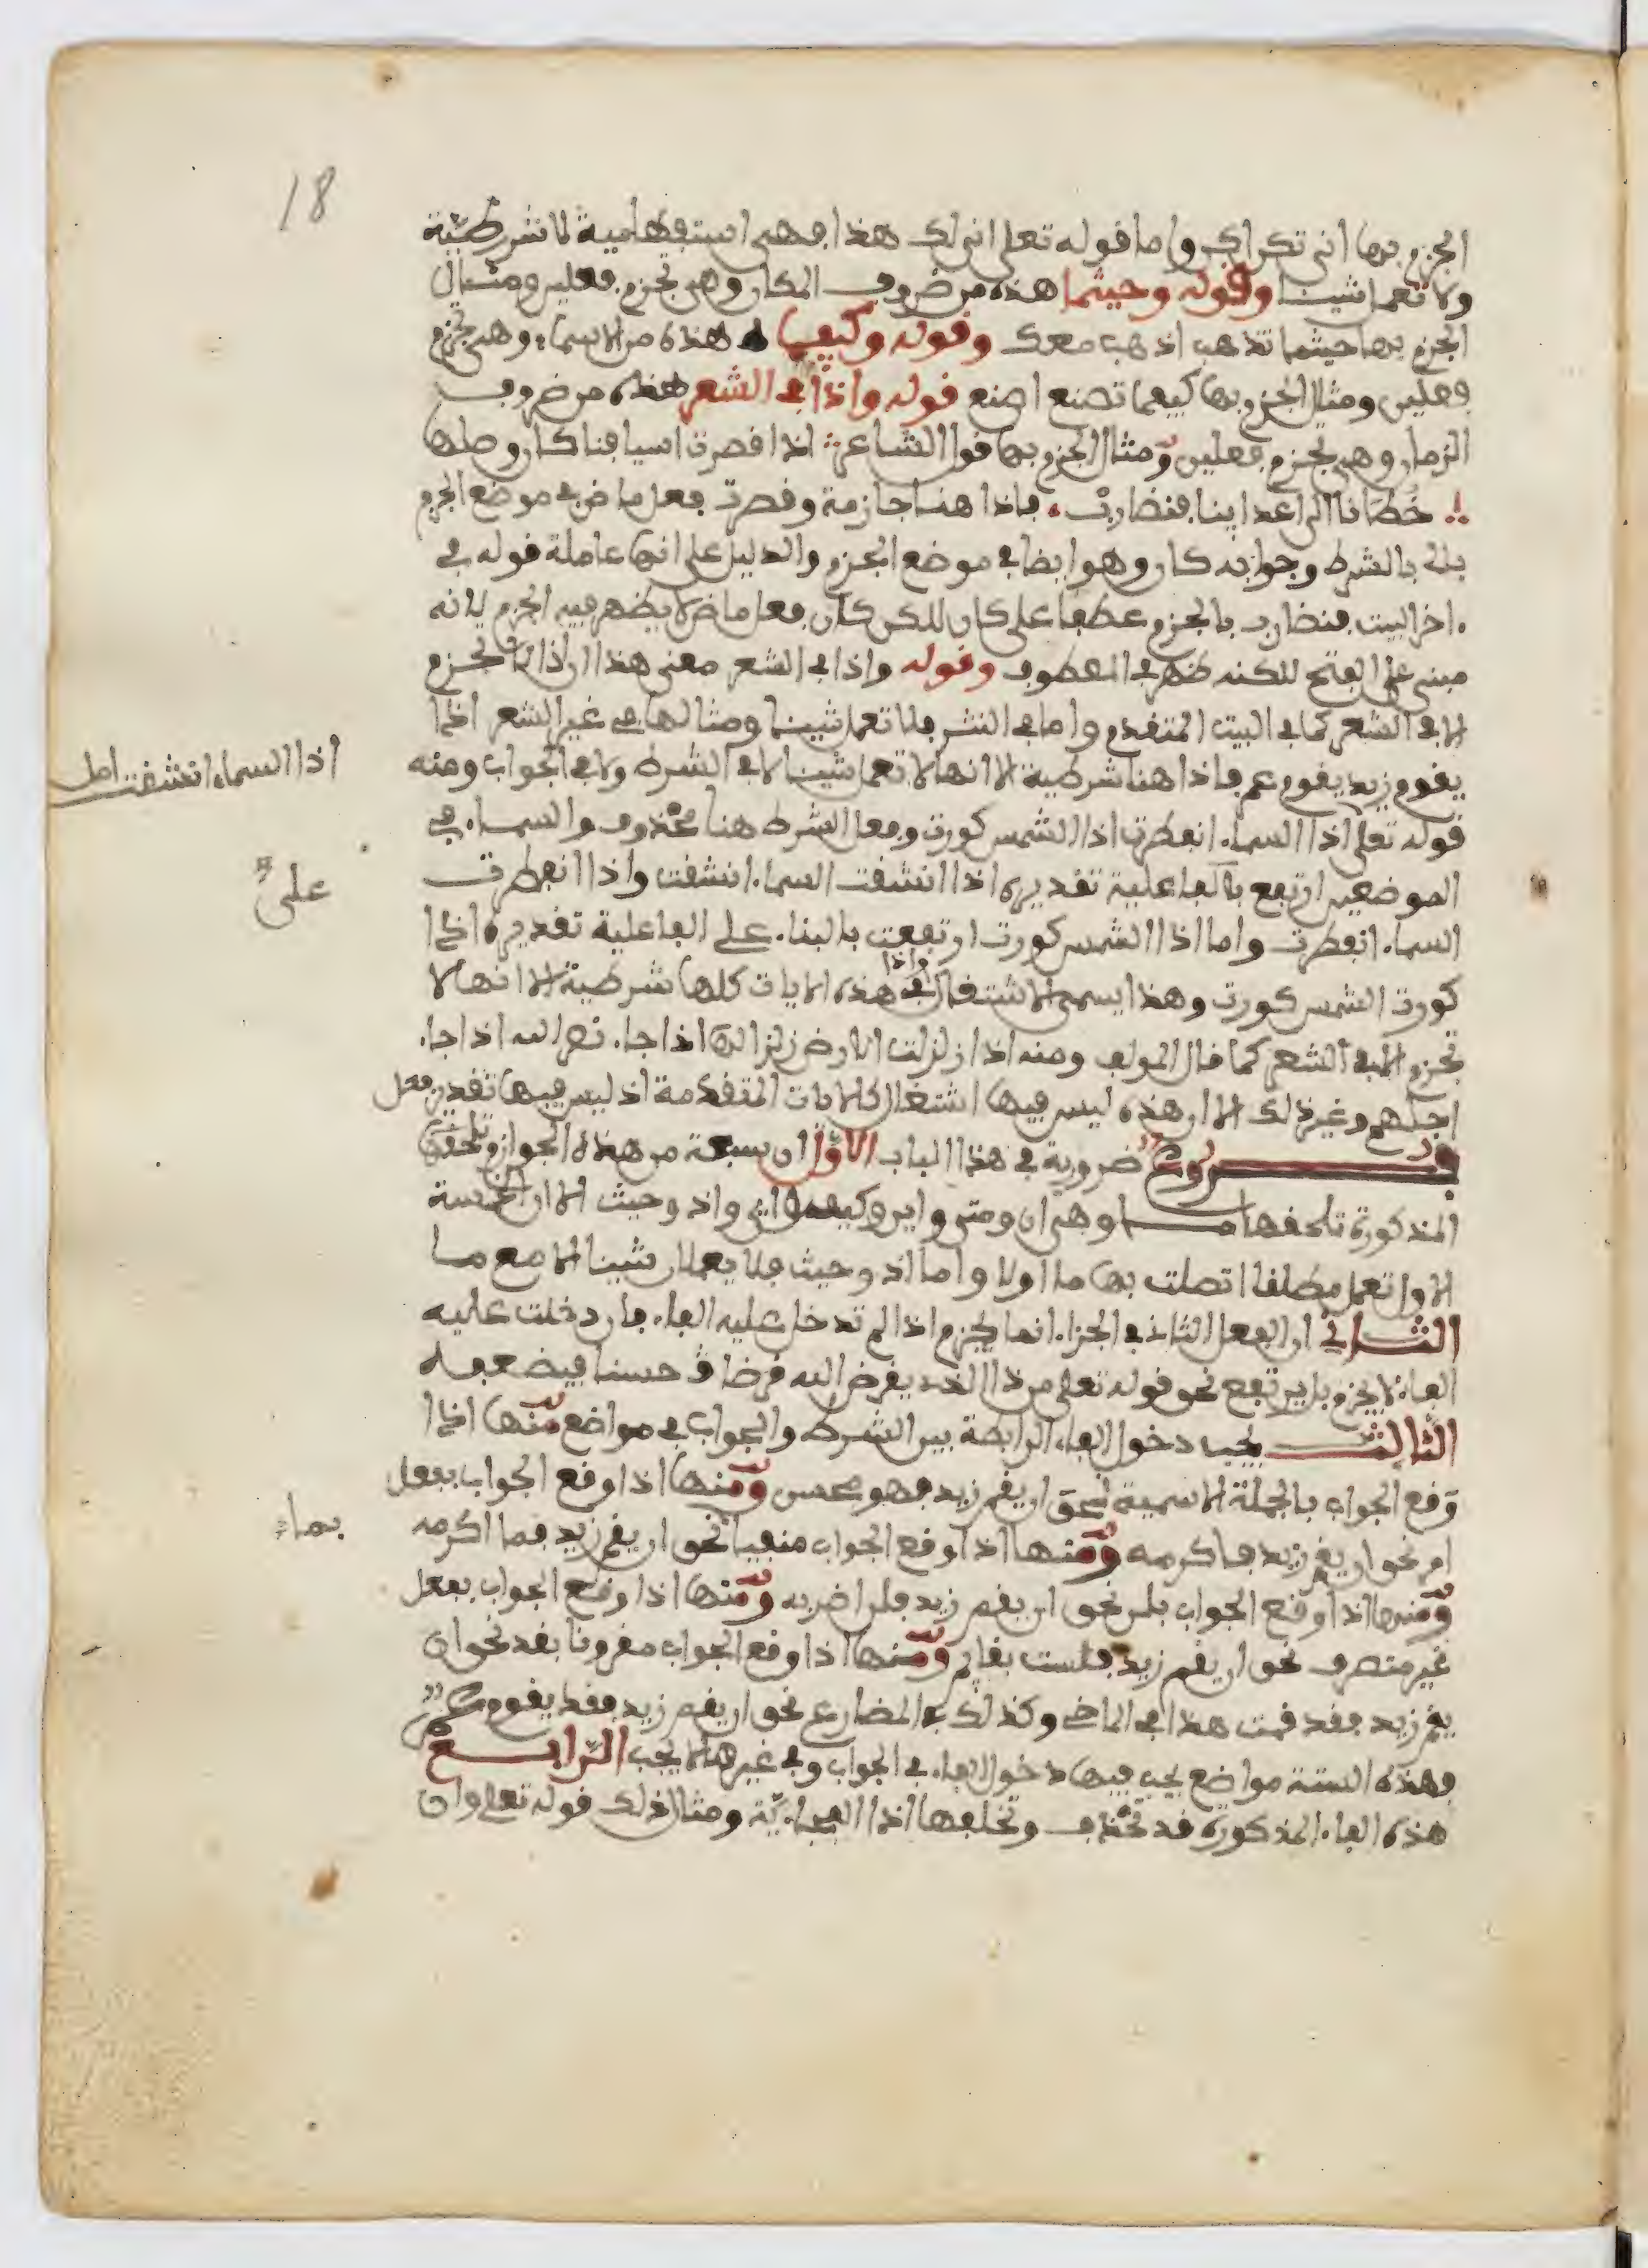 18
الجزم بها انى تكن اكن واما قوله تعلى انى لك هذا فهي استفهامية لا شرطية
ولا تعمل شيئا وقوله وحيثما هذه من ضروف المكان وهي تجزم فعلين ومثال
الجزم بها حيثما تذهب اذهب معك وقوله وكيفما هذه من الاسماء وهي تجزم
فعلين ومثال الجزم بها كيفما تصنع اصنع قوله واذا في الشعر هذه من ضروف
الزمان وهي تجزم فعلين ومثال الجزم بها قول الشاعر اذا قصرت اسيافنا كان وصلها
خُطَانا الى اعدائنا فنضارب فاذا هنا جازمة وقصرت فعل ماض في موضع الجزم
بالشرط وجوابه كان وهو ايضا في موضع الجزم والدليل على انها عاملة قوله في
اخر البيت فنضارب بالجزم عطفا على كان للكن كان فعل ماض لا يظهر فيه الجزم لانه
مبني على الفتح للكنه ظهر في المعطوف وقوله واذا في الشعر معنى هذا ان اذا لا تجزم
الا في الشعر كما في البيت المتقدم واما في النثر فلا تعمل شيئا ومثالها في غير الشعر اذا
يقوم زيد يقوم عمر فاذا هنا شرطية الا انها لا تعمل شيئا لا في الشرط ولا في الجواب ومنه
اذا السماء انشقت اصل
قوله تعلى اذا السماء انفطرت اذا الشمس كورت وفعل الشرط هنا محذوف والسماء في
الموضعين ارتفع بالفاعلية تقديره اذا انشقت السماء انشقت واذا انفطرت
على
السماء انفطرت واما اذا الشمس كورت ارتفعت بالبناء على الفاعلية تقديره اذا
كورت الشمس كورت وهذا يسمى الاشتغال واذا في هذه الايات كلها شرطية الا انها لا
تجزم الا في الشعر كما قال المولف ومنه اذا زلزلت الارض زلزالها اذا جاء نصر الله اذا جاء
اجلهم وغير ذلك الا ان هذه ليس فيها اشتغال كالايات المتقدمة اذ ليس فيها تقدير فعل
فروع ضرورية في هذا الباب الاول ان سبعة من هذه الجوازم
المذكورة تلحقها ما وهي ان ومتى واين وكيف واي واذ وحيث الا ان الخمسة
الاول تعمل مطلقا اتصلت بها ما اولا واما اذ وحيث فلا يعملان شيئا الا مع ما
الثاني ان الفعل الثاني في الجزاء انما يجزم اذا لم تدخل عليه الفاء فان دخلت عليه
الفاء لا يجزم بل يرتفع نحو قوله تعلى من ذا الذي يقرض الله قرضا حسنا فيضعفه
الثالث يجب دخول الفاء الرابطة بين الشرط والجواب في مواضع منها اذا
وقع الجواب بالجملة الاسمية نحو ان يقم زيد فهو محسن ومنها اذا وقع الجواب بفعل
امر نحو ان يقم زيد فاكرمه ومنها اذا وقع الجواب منفيا نحو ان يقم زيد فما اكرمه
بما
ومنها اذا وقع الجواب بلن نحو ان يقم زيد فلن اضربه ومنها اذا وقع الجواب بفعل
غير متصرف نحو ان يقم زيد فلست بقايم ومنها اذا وقع الجواب مقرونا بقد نحو ان
يقم زيد فقد قمت هذا في الماضي وكذلك في المضارع نحو ان يقم زيد فقد يقوم عمر
فهذه الستة مواضع يجب فيها دخول الفاء في الجواب وفي غيرها لا يجب الرابع
هذه الفاء المذكورة قد تحذف وتخلفها اذا الفجاءية ومثال ذلك قوله تعلى وان